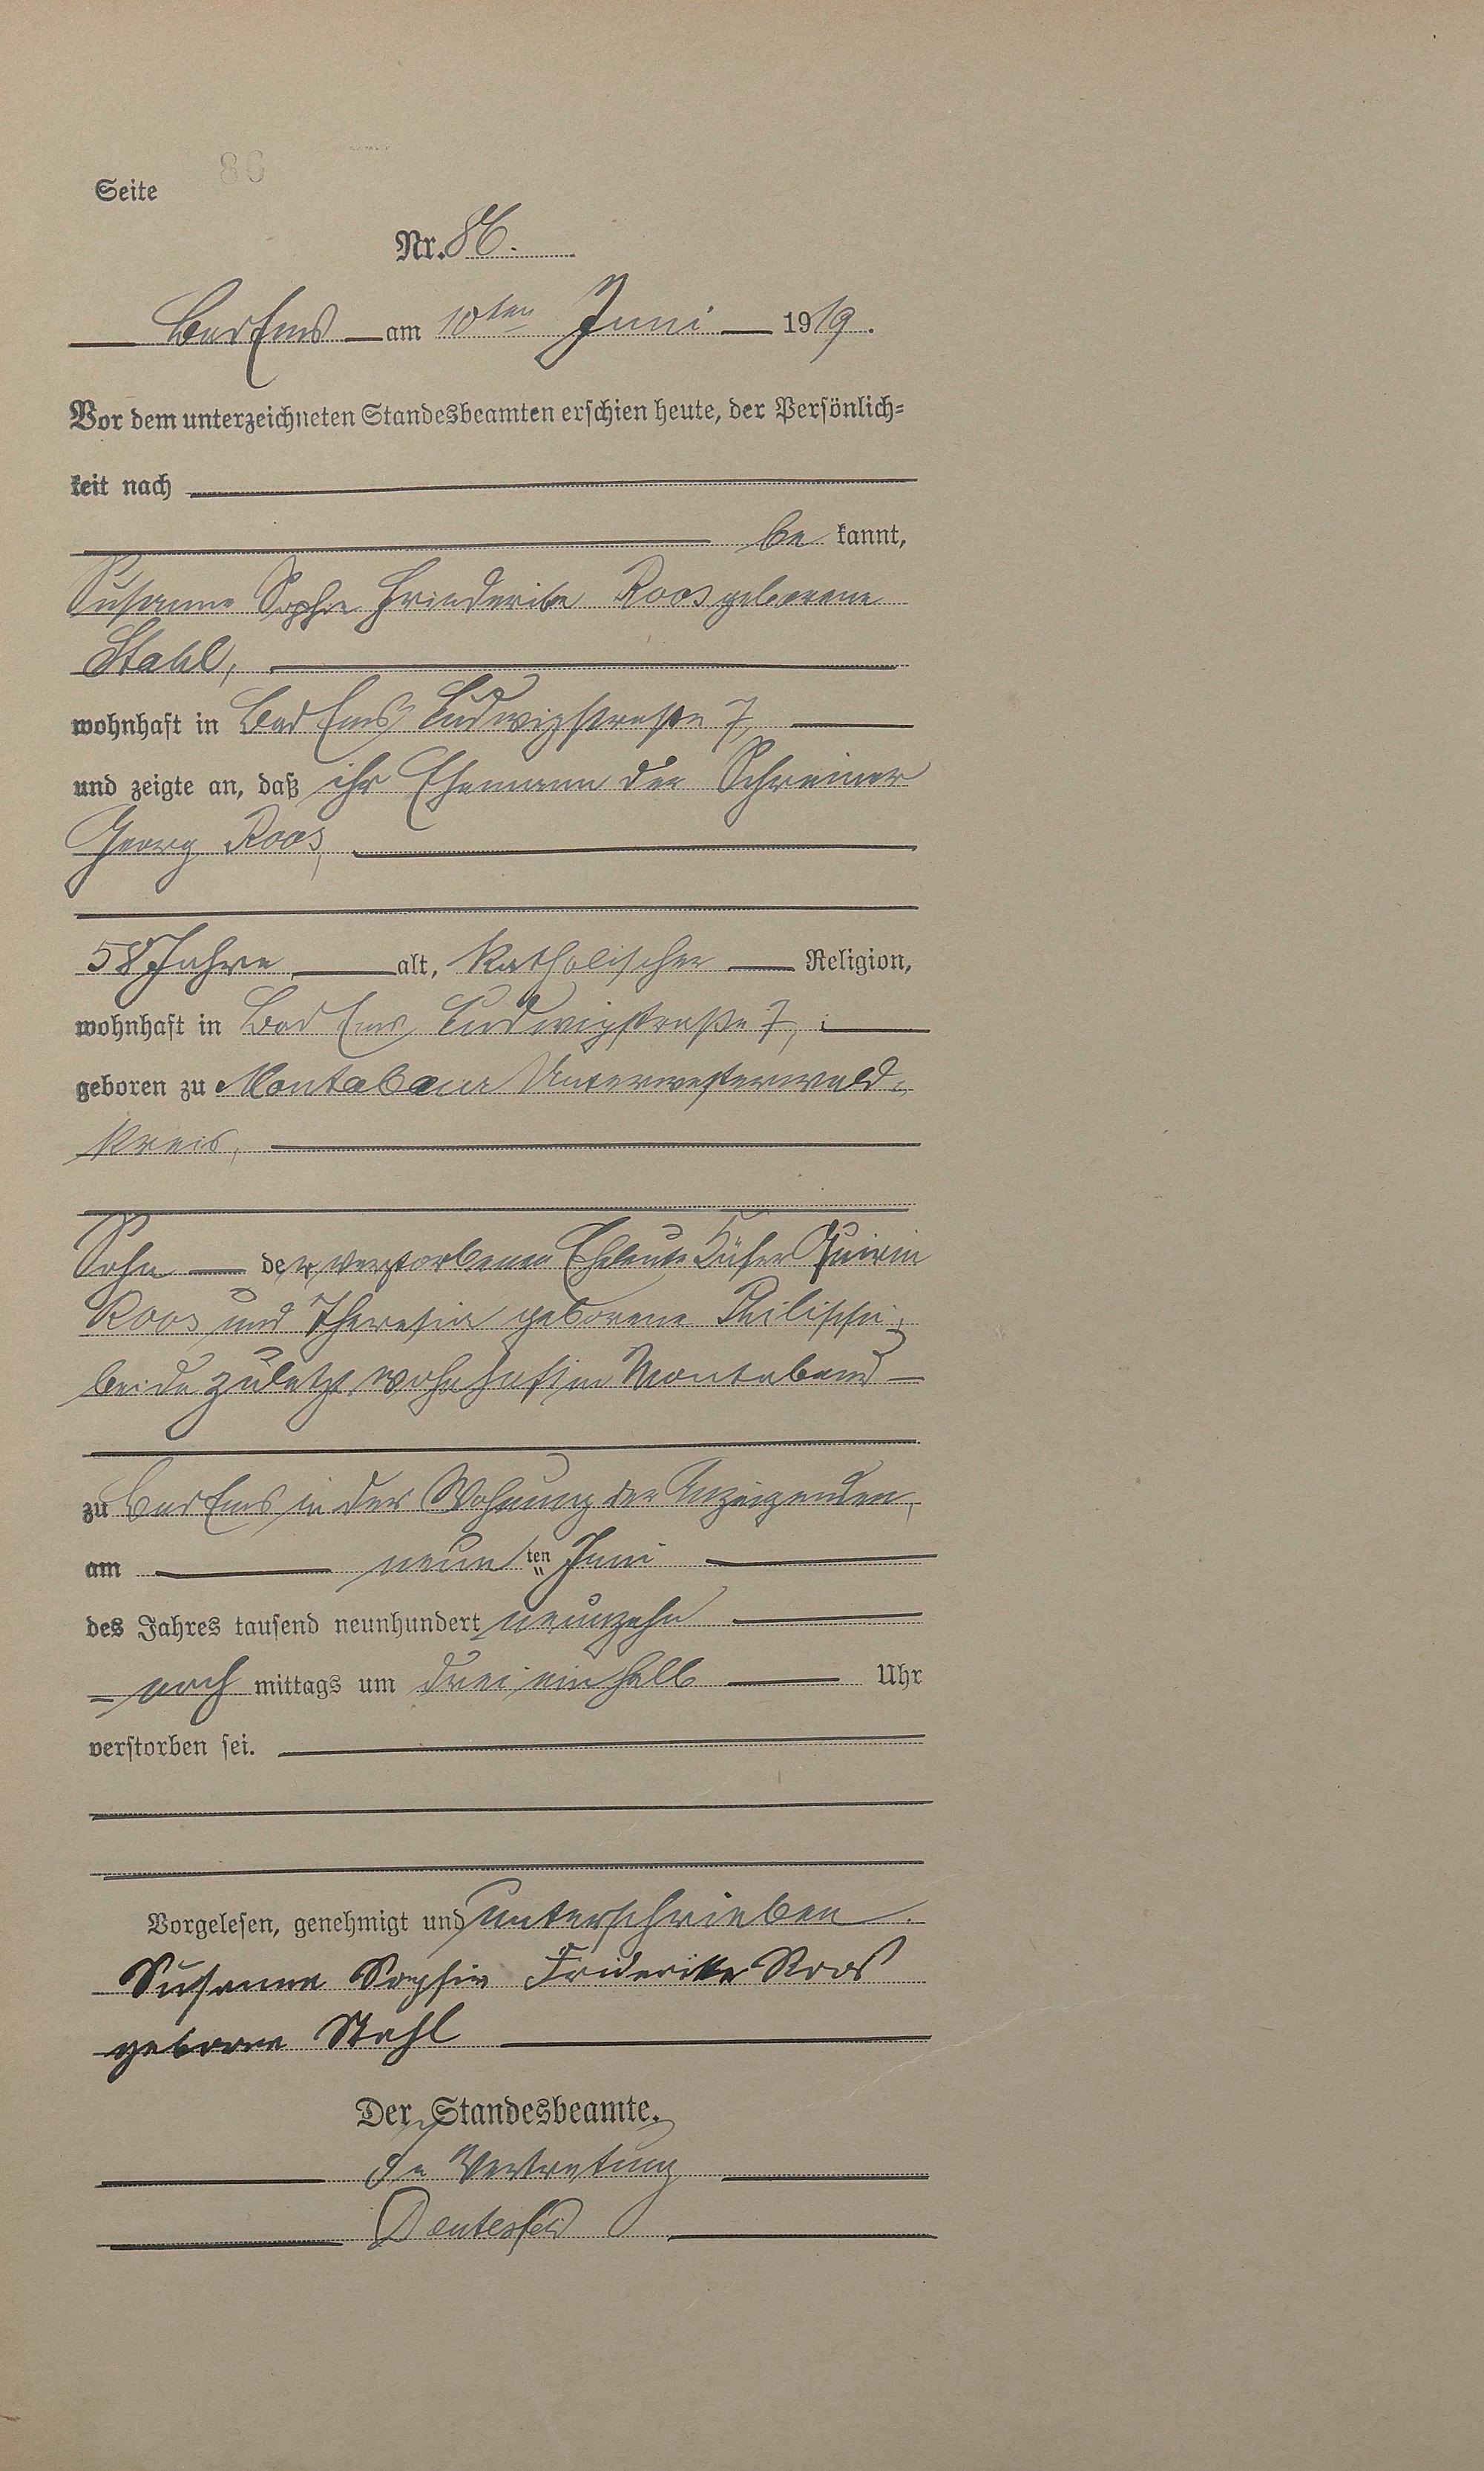 Seite 86
Nr. 86.
Bad Ems am 10ten Juni 1919.
Vor dem unterzeichneten Standesbeamten erschien heute, der Persönlich=
keit nach
be kannt,
Susanne Sophie Friederike Roos geborene
Stahl,
wohnhaft in Bad Ems Ludwigstraße 7,
und zeigte an, daß ihr Ehemann der Schreiner
Georg Roos,
58 Jahre alt, katholischer Religion,
wohnhaft in Bad Ems, Ludwigstraße 7,
geboren zu Montabaur Unterwesterwald-
kreis,
Sohn der verstorbenen Eheleute Küfer Quirin
Roos und Theresia geborene
beide zuletzt wohnhaft in Montabaur
zu Bad Ems in der Wohnung der Anzeigenden,
am neun ten Juni
des Jahres tausend neunhundert neunzehn
nach mittags um drei einhalb Uhr
verstorben sei.
Vorgelesen, genehmigt und unterschrieben.
Susanna Sophie Friderike Roos
geborene Stahl
Der Standesbeamte.
In Vertretung